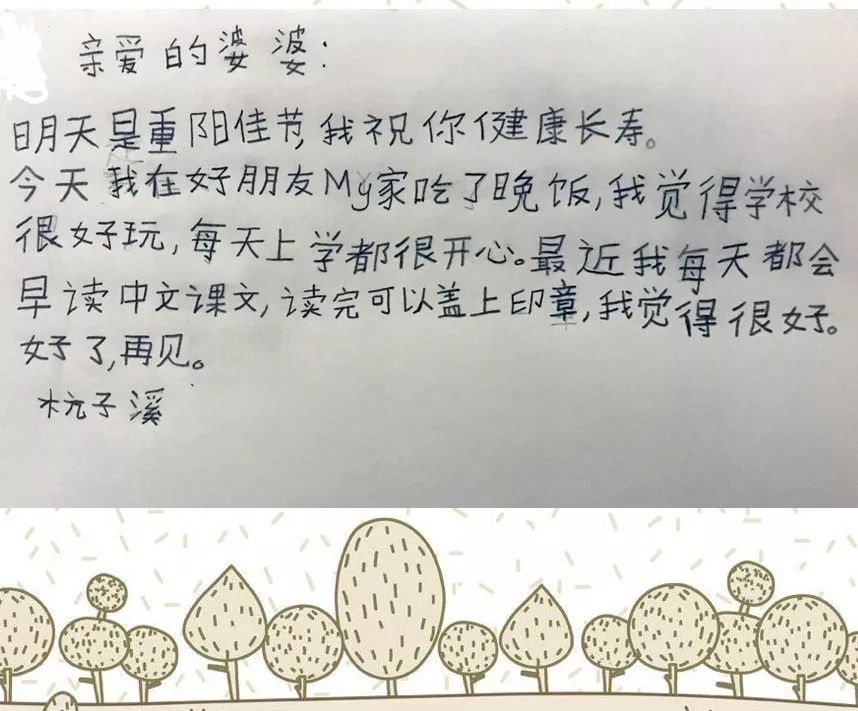 亲爱的婆婆:
明天是重阳佳节,我祝你健康长寿。
今天我在好朋友My家吃了晚饭,我觉得学校
很好玩,每天上学都很开心。最近我每天都会
早读中文课文,读完可以盖上印章,我觉得很好。
好了,再见。
杭子溪